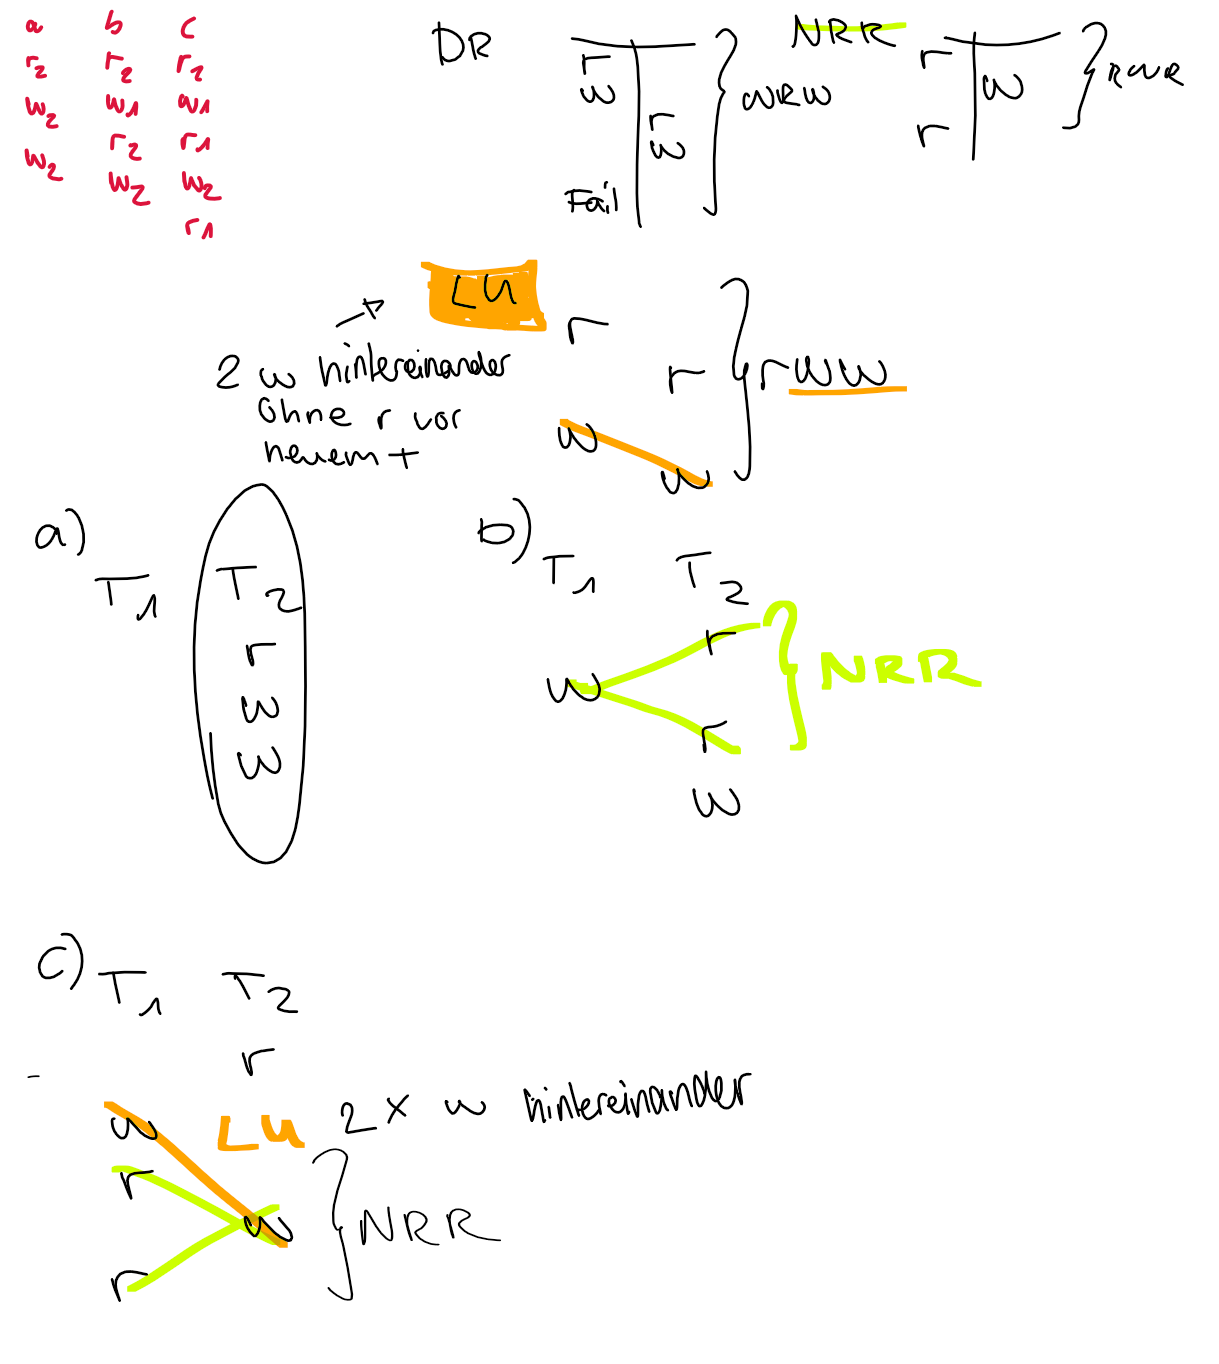 a b c
r2 r2 r2
w2 w1 w1
w2 r2 r1
w2 w2
r1
DR
r
w
r
w
Fail
WRW
NRR
r
w
r
RWR
LU
2 w hintereinander
ohne r vor
neuem +
r
r
w
w
rww
a)
T1 T2
r
w
w
b)
T1 T2
r
w
r
w
NRR
c)
T1 T2
r
w
LU 2 x w hintereinander
r
w
r
NRR